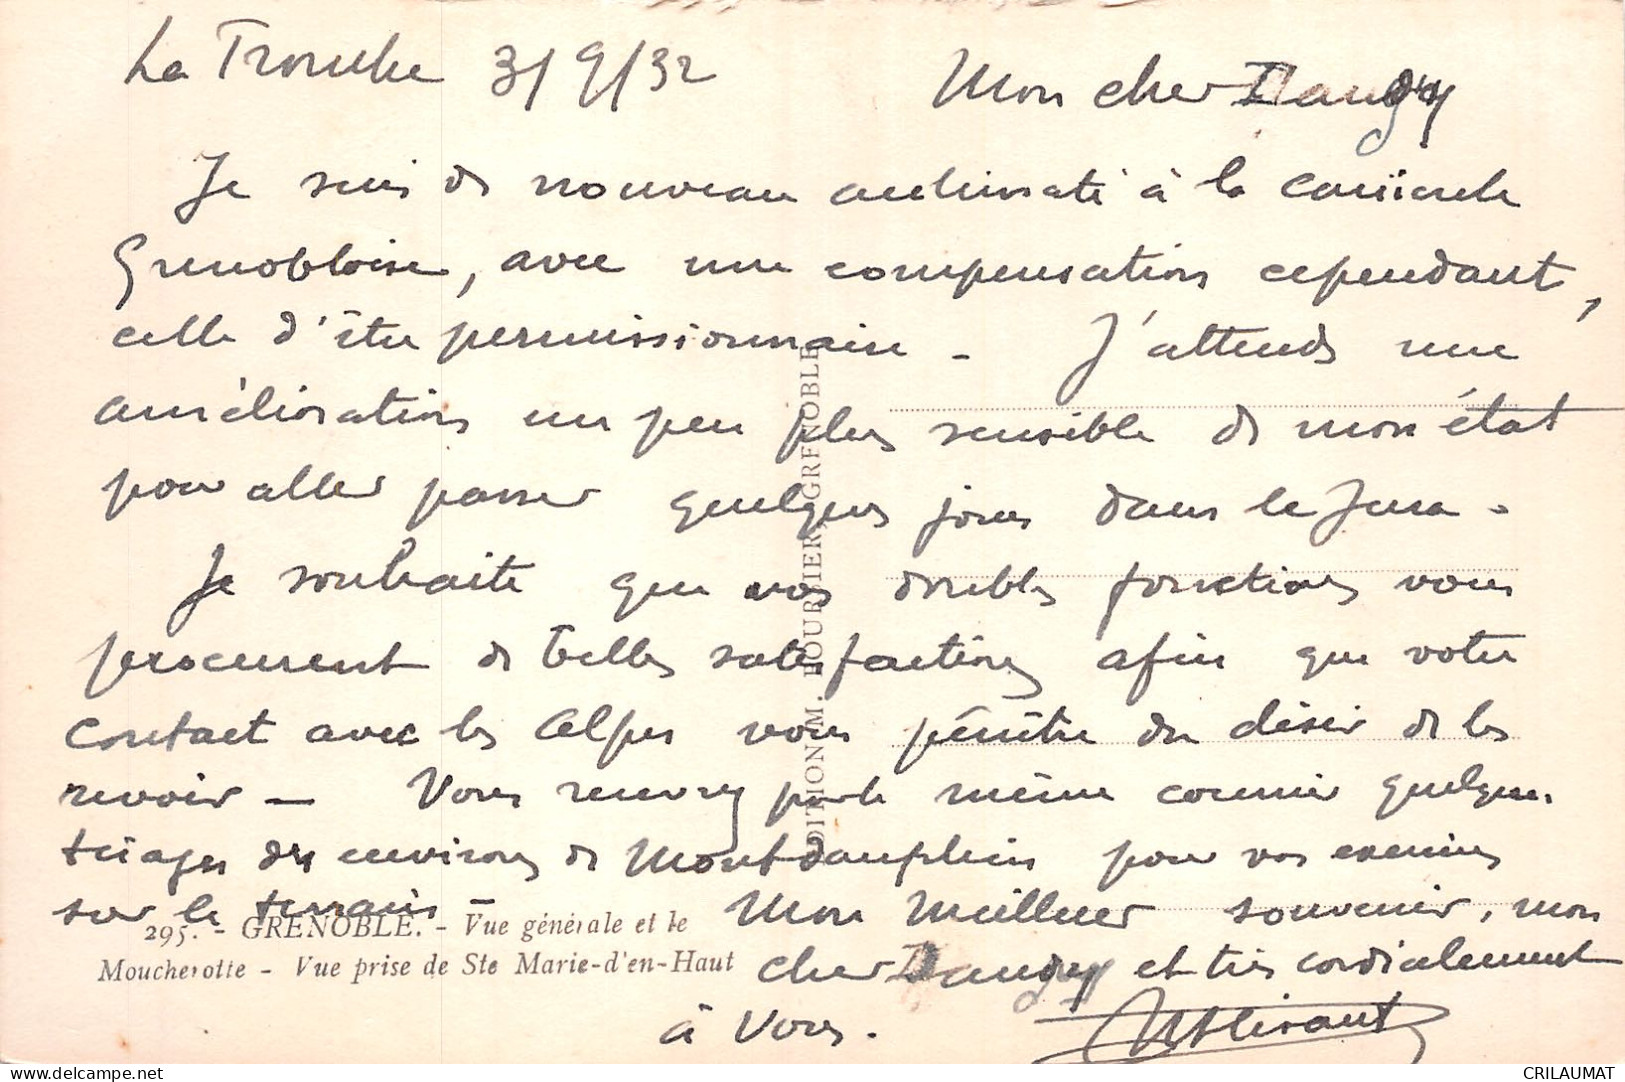 La Tronche 3/9/32 Mon cher
Je suis de nouveau acclimaté à la canicule
Grenobloise, avec une compensation cependant,
celle d'être permissionnaire - J'attends une
amélioration un peu plus sensible de mon état
pour aller passer quelques jours dans le Jura.
Je souhaite que vos doubles fonctions vous
procurent de telles satisfactions afin que votre
contact avec les Alpes vous pénètre du désir de les
revoir - Vous recevrez par le même courrier quelques
tirages des environs de Montdauphin pour vos exercices
sur le terrain - Mon meilleur souvenir, mon
cher et très cordialement
à vous.
295. - GRENOBLE. - Vue générale et le
Moucherotte - Vue prise de Ste Marie-d'en-Haut
EDITION M. POURBIER, GRENOBLE
CRILAUMAT